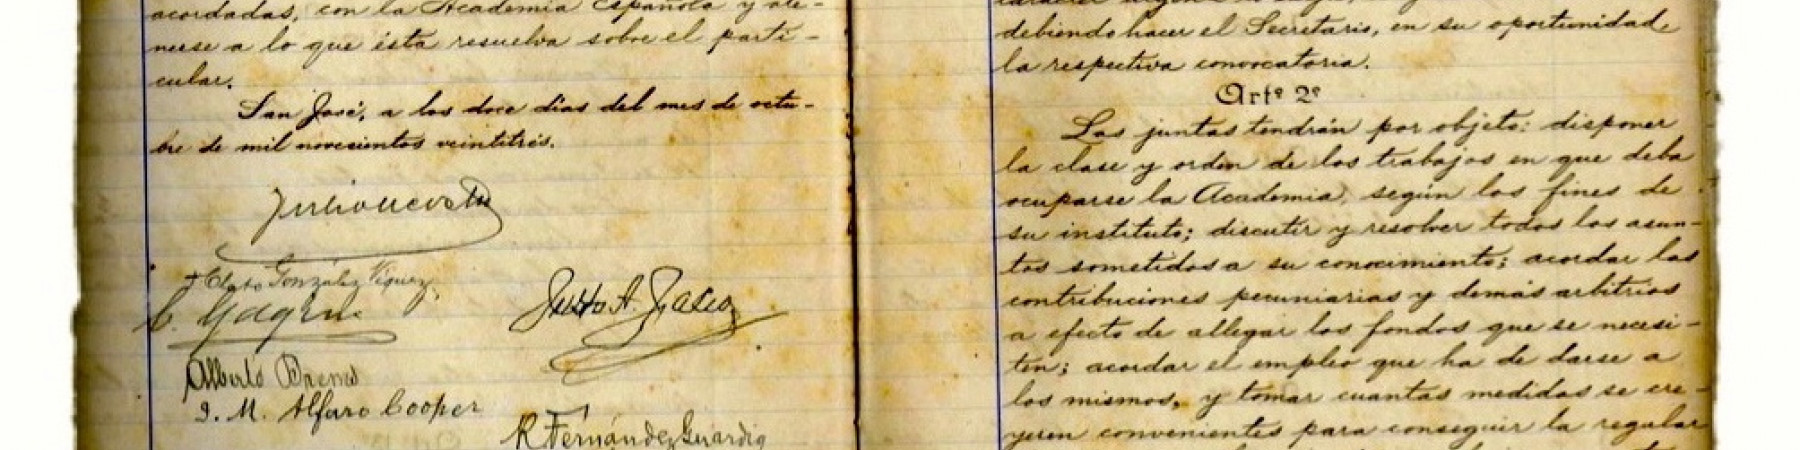 acordadas, con la Academia Española y ate-
nerse a lo que ésta resuelva sobre el parti-
cular.
San José, a los doce días del mes de octu-
bre de mil novecientos veintitrés.
Cleto González Víquez
C. Gagini
Justo A. Facio
Alberto Brenes
J. M. Alfaro Cooper
R Fernández Guardia
debiendo hacer el Secretario, en su oportunidad,
la respectiva convocatoria.
Artº 2º
Las juntas tendrán por objeto: disponer
la clase y orden de los trabajos en que deba
ocuparse la Academia, según los fines de
su instituto; discutir y resolver todos los asun-
tos sometidos a su conocimiento; acordar las
contribuciones pecuniarias y demás arbitrios
a efecto de allegar los fondos que se necesi-
ten; acordar el empleo que ha de darse a
los mismos, y tomar cuantas medidas se cre-
yeren convenientes para conseguir la regular